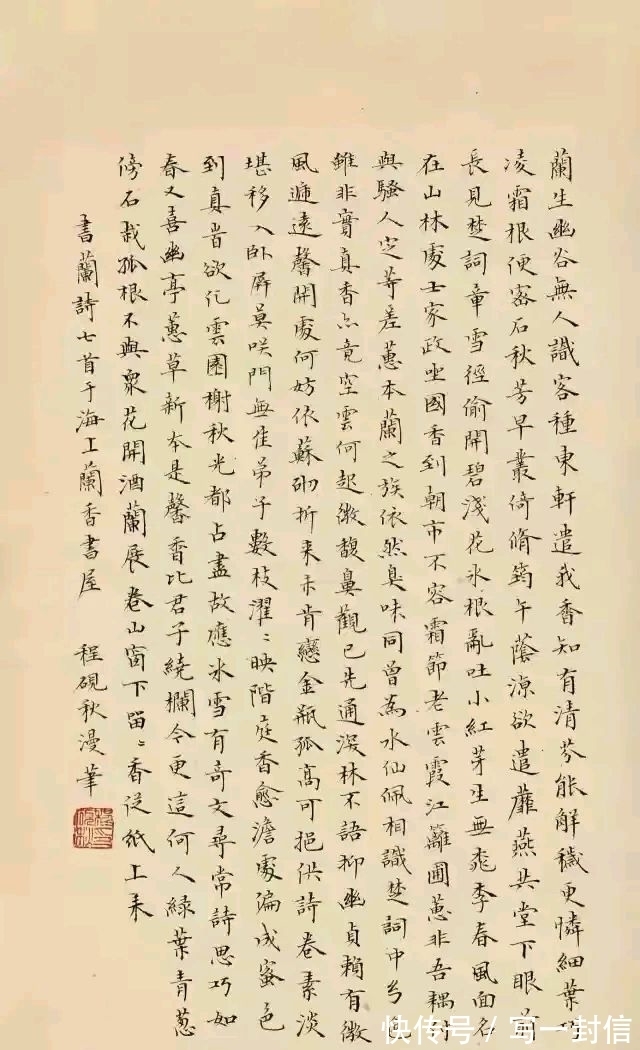 蘭生幽谷無人識客種東軒遣我香知有清芬能解穢更憐細葉巧
凌霜根便密石秋芳早叢倚脩筠午蔭涼欲遣蘼蕪共堂下眼前
長見楚詞章雪徑偷開碧淺花氷根亂吐小紅芽生無桃李春風面名
在山林處士家政坐國香到朝市不容霜節老雲霞江蘺圃蕙非吾耦
與騷人定等差蕙本蘭之族依然臭味同曾為水仙佩相識楚詞中幻色
雖非實真香亦竟空雲何起微馥鼻觀已先通深林不語抑幽貞賴有微
風遞遠馨開處何妨依蘚砌折来未肯戀金瓶孤高可挹供詩卷素淡
堪移入臥屏莫咲門無佳弟子數枝濯〻映階庭香愈澹處偏成蜜色
到真昔欲化雲園榭秋光都占盡故應冰雪有奇文尋常詩思巧如
春又喜幽亭蕙草新本是馨香比君子繞欄令更這何人綠葉青蔥
傍石栽孤根不與衆花開酒闌展卷山窗下留〻香從紙上来
書蘭詩七首于海上蘭香書屋 程硯秋漫筆
快传号/写一封信